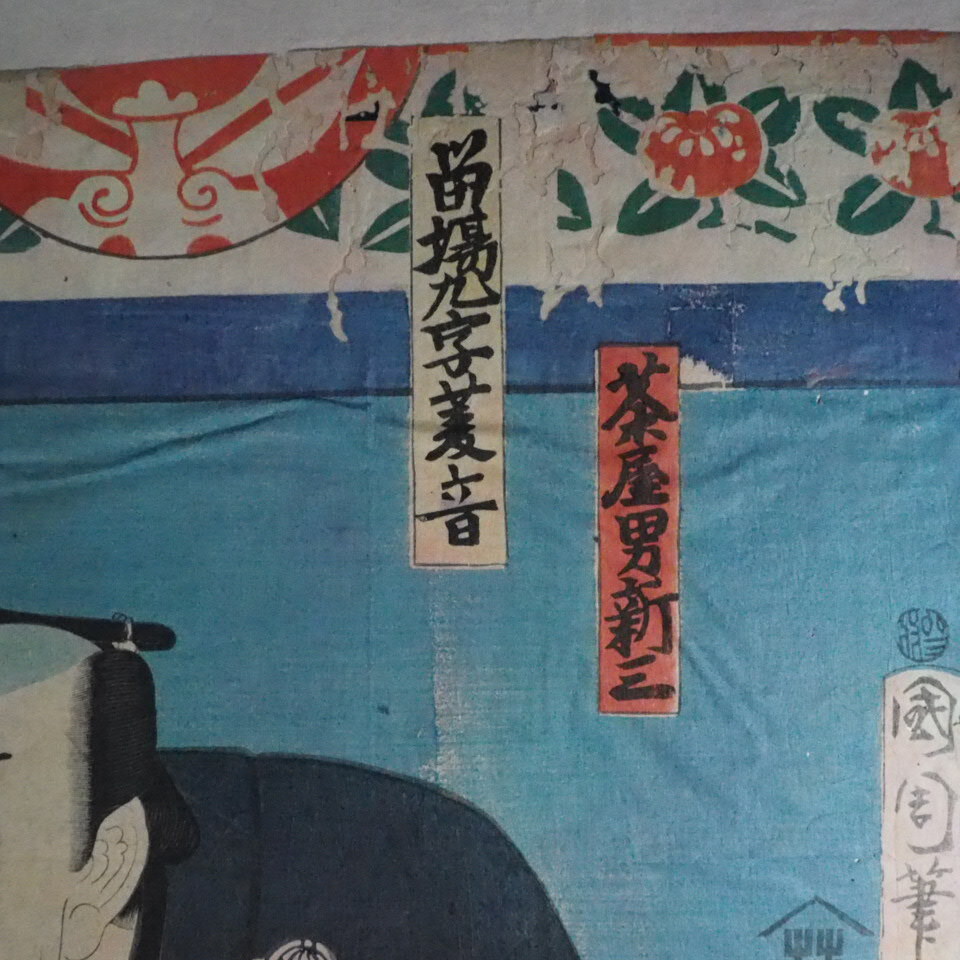 國周筆
茶屋男新三
留場九字菱音